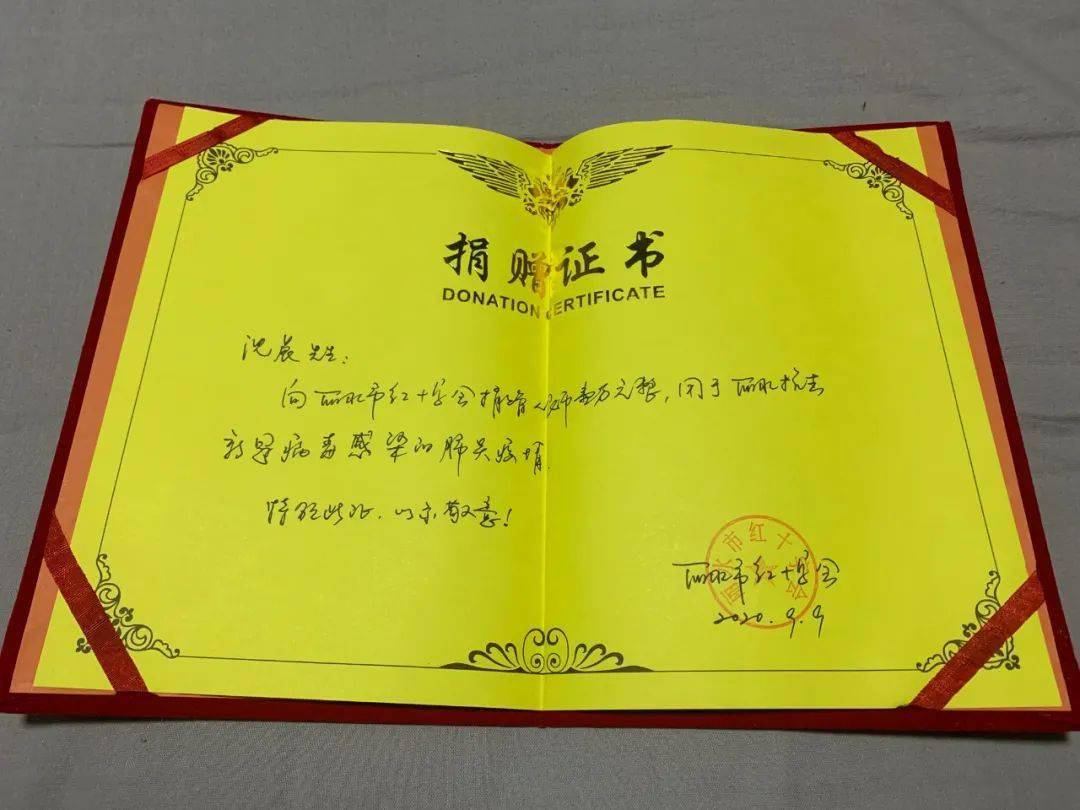 捐赠证书
DONATION CERTIFICATE
沈晨先生:
向丽水市红十字会捐赠人民币壹万元整,用于丽水抗击
新冠病毒感染的肺炎疫情.
特颁此证.以示敬意!
丽水市红十字会
2020.9.9
丽水市红十字会